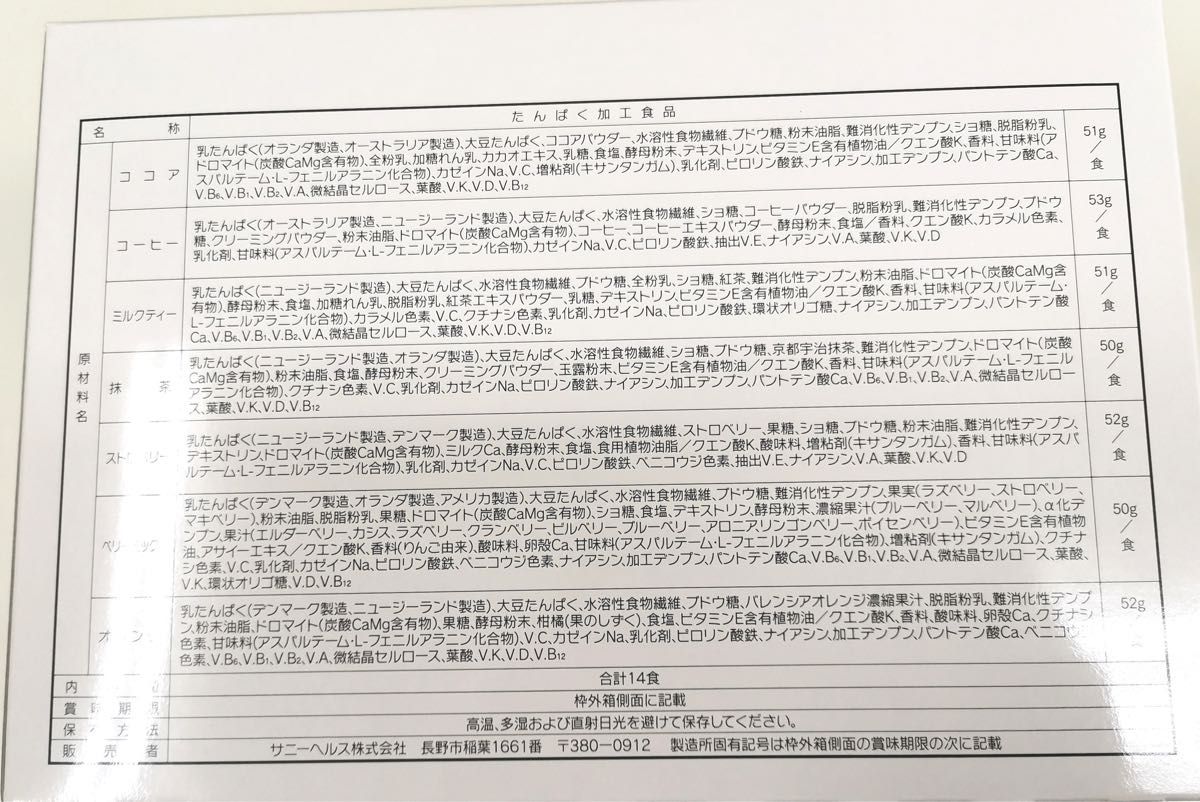 名称 たんぱく加工食品
原材料名
ココア
乳たんぱく(オランダ製造、オーストラリア製造)、大豆たんぱく、ココアパウダー、水溶性食物繊維、ブドウ糖、粉末油脂、難消化性デンプン、ショ糖、脱脂粉乳、
ドロマイト(炭酸CaMg含有物)、全粉乳、加糖れん乳、カカオエキス、乳糖、食塩、酵母粉末、デキストリン、ビタミンE含有植物油/クエン酸K、香料、甘味料(ア
スパルテーム・L-フェニルアラニン化合物)、カゼインNa、V.C、増粘剤(キサンタンガム)、乳化剤、ピロリン酸鉄、ナイアシン、加工デンプン、パントテン酸Ca、
V.B₆、V.B₁、V.B₂、V.A、微結晶セルロース、葉酸、V.K、V.D、V.B₁₂
51g/食
コーヒー
乳たんぱく(オーストラリア製造、ニュージーランド製造)、大豆たんぱく、水溶性食物繊維、ショ糖、コーヒーパウダー、脱脂粉乳、難消化性デンプン、ブドウ
糖、クリーミングパウダー、粉末油脂、ドロマイト(炭酸CaMg含有物)、コーヒー、コーヒーエキスパウダー、酵母粉末、食塩/香料、クエン酸K、カラメル色素、
乳化剤、甘味料(アスパルテーム・L-フェニルアラニン化合物)、カゼインNa、V.C、ピロリン酸鉄、抽出V.E、ナイアシン、V.A、葉酸、V.K、V.D
53g/食
ミルクティー
乳たんぱく(ニュージーランド製造)、大豆たんぱく、水溶性食物繊維、ブドウ糖、全粉乳、ショ糖、紅茶、難消化性デンプン、粉末油脂、ドロマイト(炭酸CaMg含
有物)、酵母粉末、食塩、加糖れん乳、脱脂粉乳、紅茶エキスパウダー、乳糖、デキストリン、ビタミンE含有植物油/クエン酸K、香料、甘味料(アスパルテーム・
L-フェニルアラニン化合物)、カラメル色素、V.C、クチナシ色素、乳化剤、カゼインNa、ピロリン酸鉄、環状オリゴ糖、ナイアシン、加工デンプン、パントテン酸
Ca、V.B₆、V.B₁、V.B₂、V.A、微結晶セルロース、葉酸、V.K、V.D、V.B₁₂
51g/食
抹茶
乳たんぱく(ニュージーランド製造、オランダ製造)、大豆たんぱく、水溶性食物繊維、ショ糖、ブドウ糖、京都宇治抹茶、難消化性デンプン、ドロマイト(炭酸
CaMg含有物)、粉末油脂、食塩、酵母粉末、クリーミングパウダー、玉露粉末、ビタミンE含有植物油/クエン酸K、香料、甘味料(アスパルテーム・L-フェニル
アラニン化合物)、クチナシ色素、V.C、乳化剤、カゼインNa、ピロリン酸鉄、ナイアシン、加工デンプン、パントテン酸Ca、V.B₆、V.B₁、V.B₂、V.A、微結晶セルロー
ス、葉酸、V.K、V.D、V.B₁₂
50g/食
ストロベリー
乳たんぱく(ニュージーランド製造、デンマーク製造)、大豆たんぱく、水溶性食物繊維、ストロベリー、果糖、ショ糖、ブドウ糖、粉末油脂、難消化性デンプン、
デキストリン、ドロマイト(炭酸CaMg含有物)、ミルクCa、酵母粉末、食塩、食用植物油脂/クエン酸K、酸味料、増粘剤(キサンタンガム)、香料、甘味料(アスパ
ルテーム・L-フェニルアラニン化合物)、乳化剤、カゼインNa、V.C、ピロリン酸鉄、ベニコウジ色素、抽出V.E、ナイアシン、V.A、葉酸、V.K、V.D
52g/食
乳たんぱく(デンマーク製造、オランダ製造、アメリカ製造)、大豆たんぱく、水溶性食物繊維、ブドウ糖、難消化性デンプン、果実(ラズベリー、ストロベリー、
マキベリー)、粉末油脂、脱脂粉乳、果糖、ドロマイト(炭酸CaMg含有物)、ショ糖、食塩、デキストリン、酵母粉末、濃縮果汁(ブルーベリー、マルベリー)、α化デ
ンプン、果汁(エルダーベリー、カシス、ラズベリー、クランベリー、ビルベリー、ブルーベリー、アロニア、リンゴンベリー、ボイセンベリー)、ビタミンE含有植物
油、アサイーエキス/クエン酸K、香料(りんご由来)、酸味料、卵殻Ca、甘味料(アスパルテーム・L-フェニルアラニン化合物)、増粘剤(キサンタンガム)、クチナ
シ色素、V.C、乳化剤、カゼインNa、ピロリン酸鉄、ベニコウジ色素、ナイアシン、加工デンプン、パントテン酸Ca、V.B₆、V.B₁、V.B₂、V.A、微結晶セルロース、葉酸、
V.K、環状オリゴ糖、V.D、V.B₁₂
50g/食
乳たんぱく(デンマーク製造、ニュージーランド製造)、大豆たんぱく、水溶性食物繊維、ブドウ糖、バレンシアオレンジ濃縮果汁、脱脂粉乳、難消化性デンプ
ン、粉末油脂、ドロマイト(炭酸CaMg含有物)、果糖、酵母粉末、柑橘(果のしずく)、食塩、ビタミンE含有植物油/クエン酸K、香料、酸味料、卵殻Ca、クチナシ
色素、甘味料(アスパルテーム・L-フェニルアラニン化合物)、V.C、カゼインNa、乳化剤、ピロリン酸鉄、ナイアシン、加工デンプン、パントテン酸Ca、ベニコウジ
色素、V.B₆、V.B₁、V.B₂、V.A、微結晶セルロース、葉酸、V.K、V.D、V.B₁₂
52g/食
合計14食
賞味期限 枠外箱側面に記載
保存方法 高温、多湿および直射日光を避けて保存してください。
販売者 サニーヘルス株式会社 長野市稲葉1661番 〒380-0912 製造所固有記号は枠外箱側面の賞味期限の次に記載